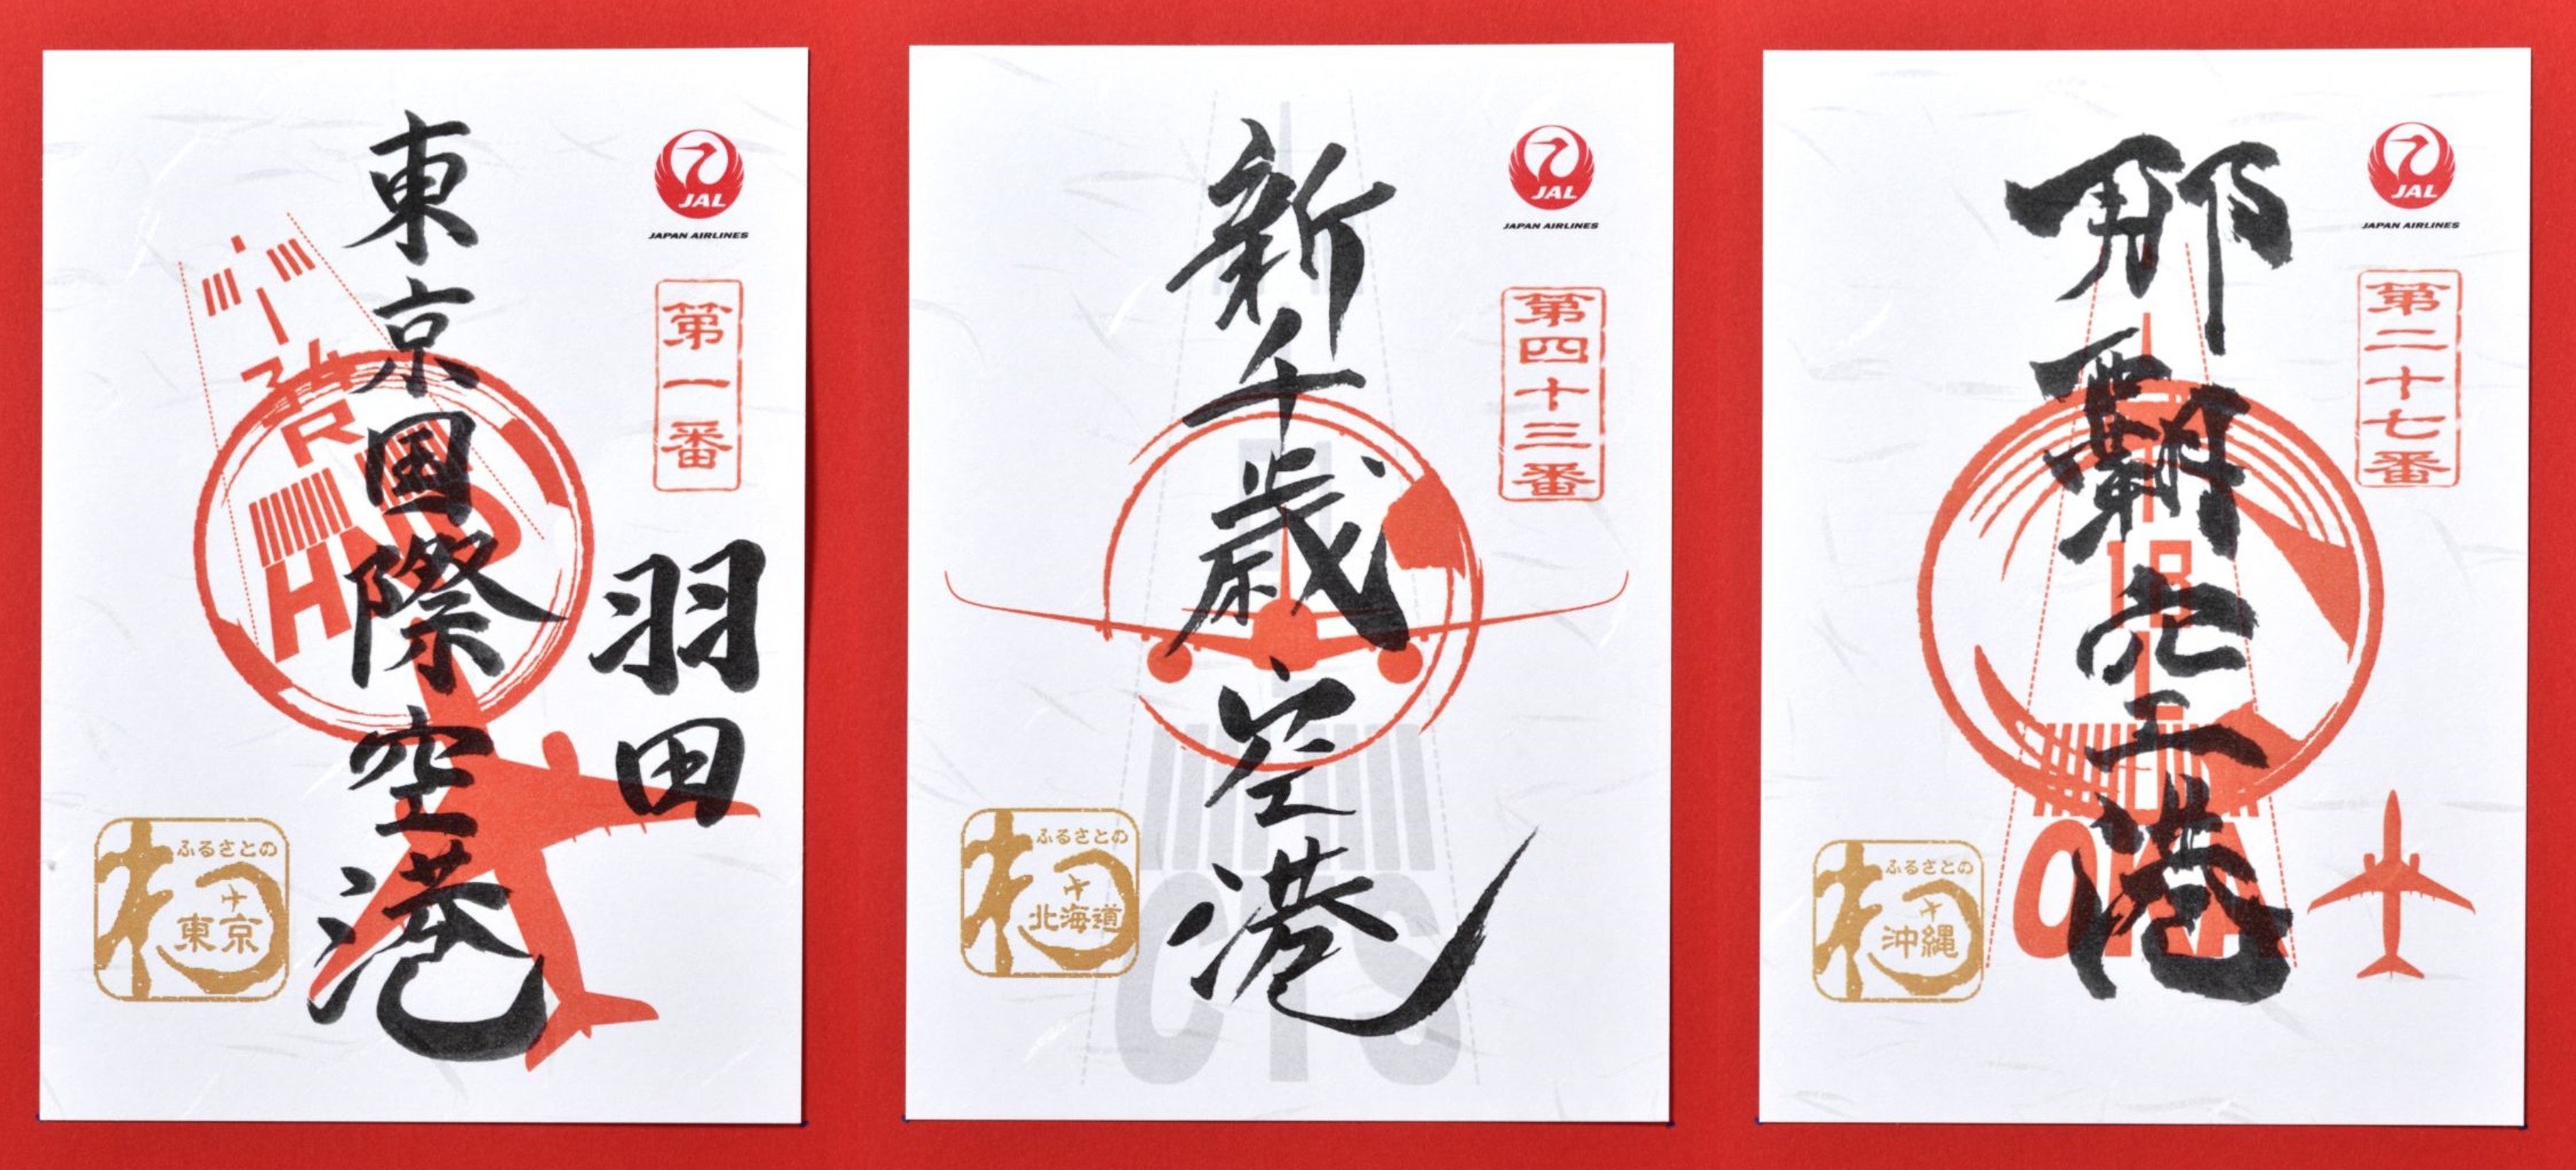 東京国際空港
羽田
JAL
JAPAN AIRLINES
第一番
34
R
HND
ふるさとの
東京
新千歳空港
JAL
JAPAN AIRLINES
第四十三番
CTS
ふるさとの
北海道
那覇空港
JAL
JAPAN AIRLINES
第二十七番
18
L
OKA
ふるさとの
沖縄